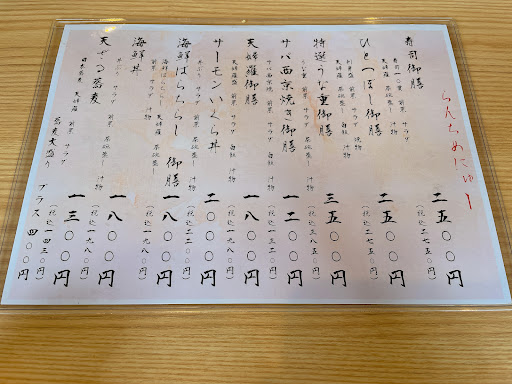 らんちめにゅー
寿司御膳 二五〇〇円
寿司一〇貫 前菜 サラダ 茶碗蒸し 汁物 (税込二七五〇円)
ひとつぼし御膳 二五〇〇円
天婦羅 前菜 サラダ 茶碗蒸し 白飯 汁物 (税込二七五〇円)
特選うな重御膳 三五〇〇円
うな重 前菜 サラダ 茶碗蒸し 汁物 (税込三八五〇円)
サバ西京焼き御膳 一二〇〇円
サバ西京焼 前菜 サラダ 白飯 汁物 (税込一三二〇円)
天婦羅御膳 一八〇〇円
天婦羅 前菜 サラダ 白飯 汁物 (税込一九八〇円)
サーモンいくら丼 二〇〇〇円
丼ぶり サラダ 前菜 茶碗蒸し 汁物 (税込二二〇〇円)
海鮮ばらちらし御膳 一八〇〇円
海鮮ばらちらし 天婦羅 汁物 (税込一九八〇円)
海鮮丼 一八〇〇円
丼ぶり サラダ 前菜 茶碗蒸し 汁物 (税込一九八〇円)
天ざる蕎麦 一三〇〇円
日本蕎麦 天婦羅 前菜 サラダ (税込一四三〇円)
蕎麦大盛り プラス四〇〇円